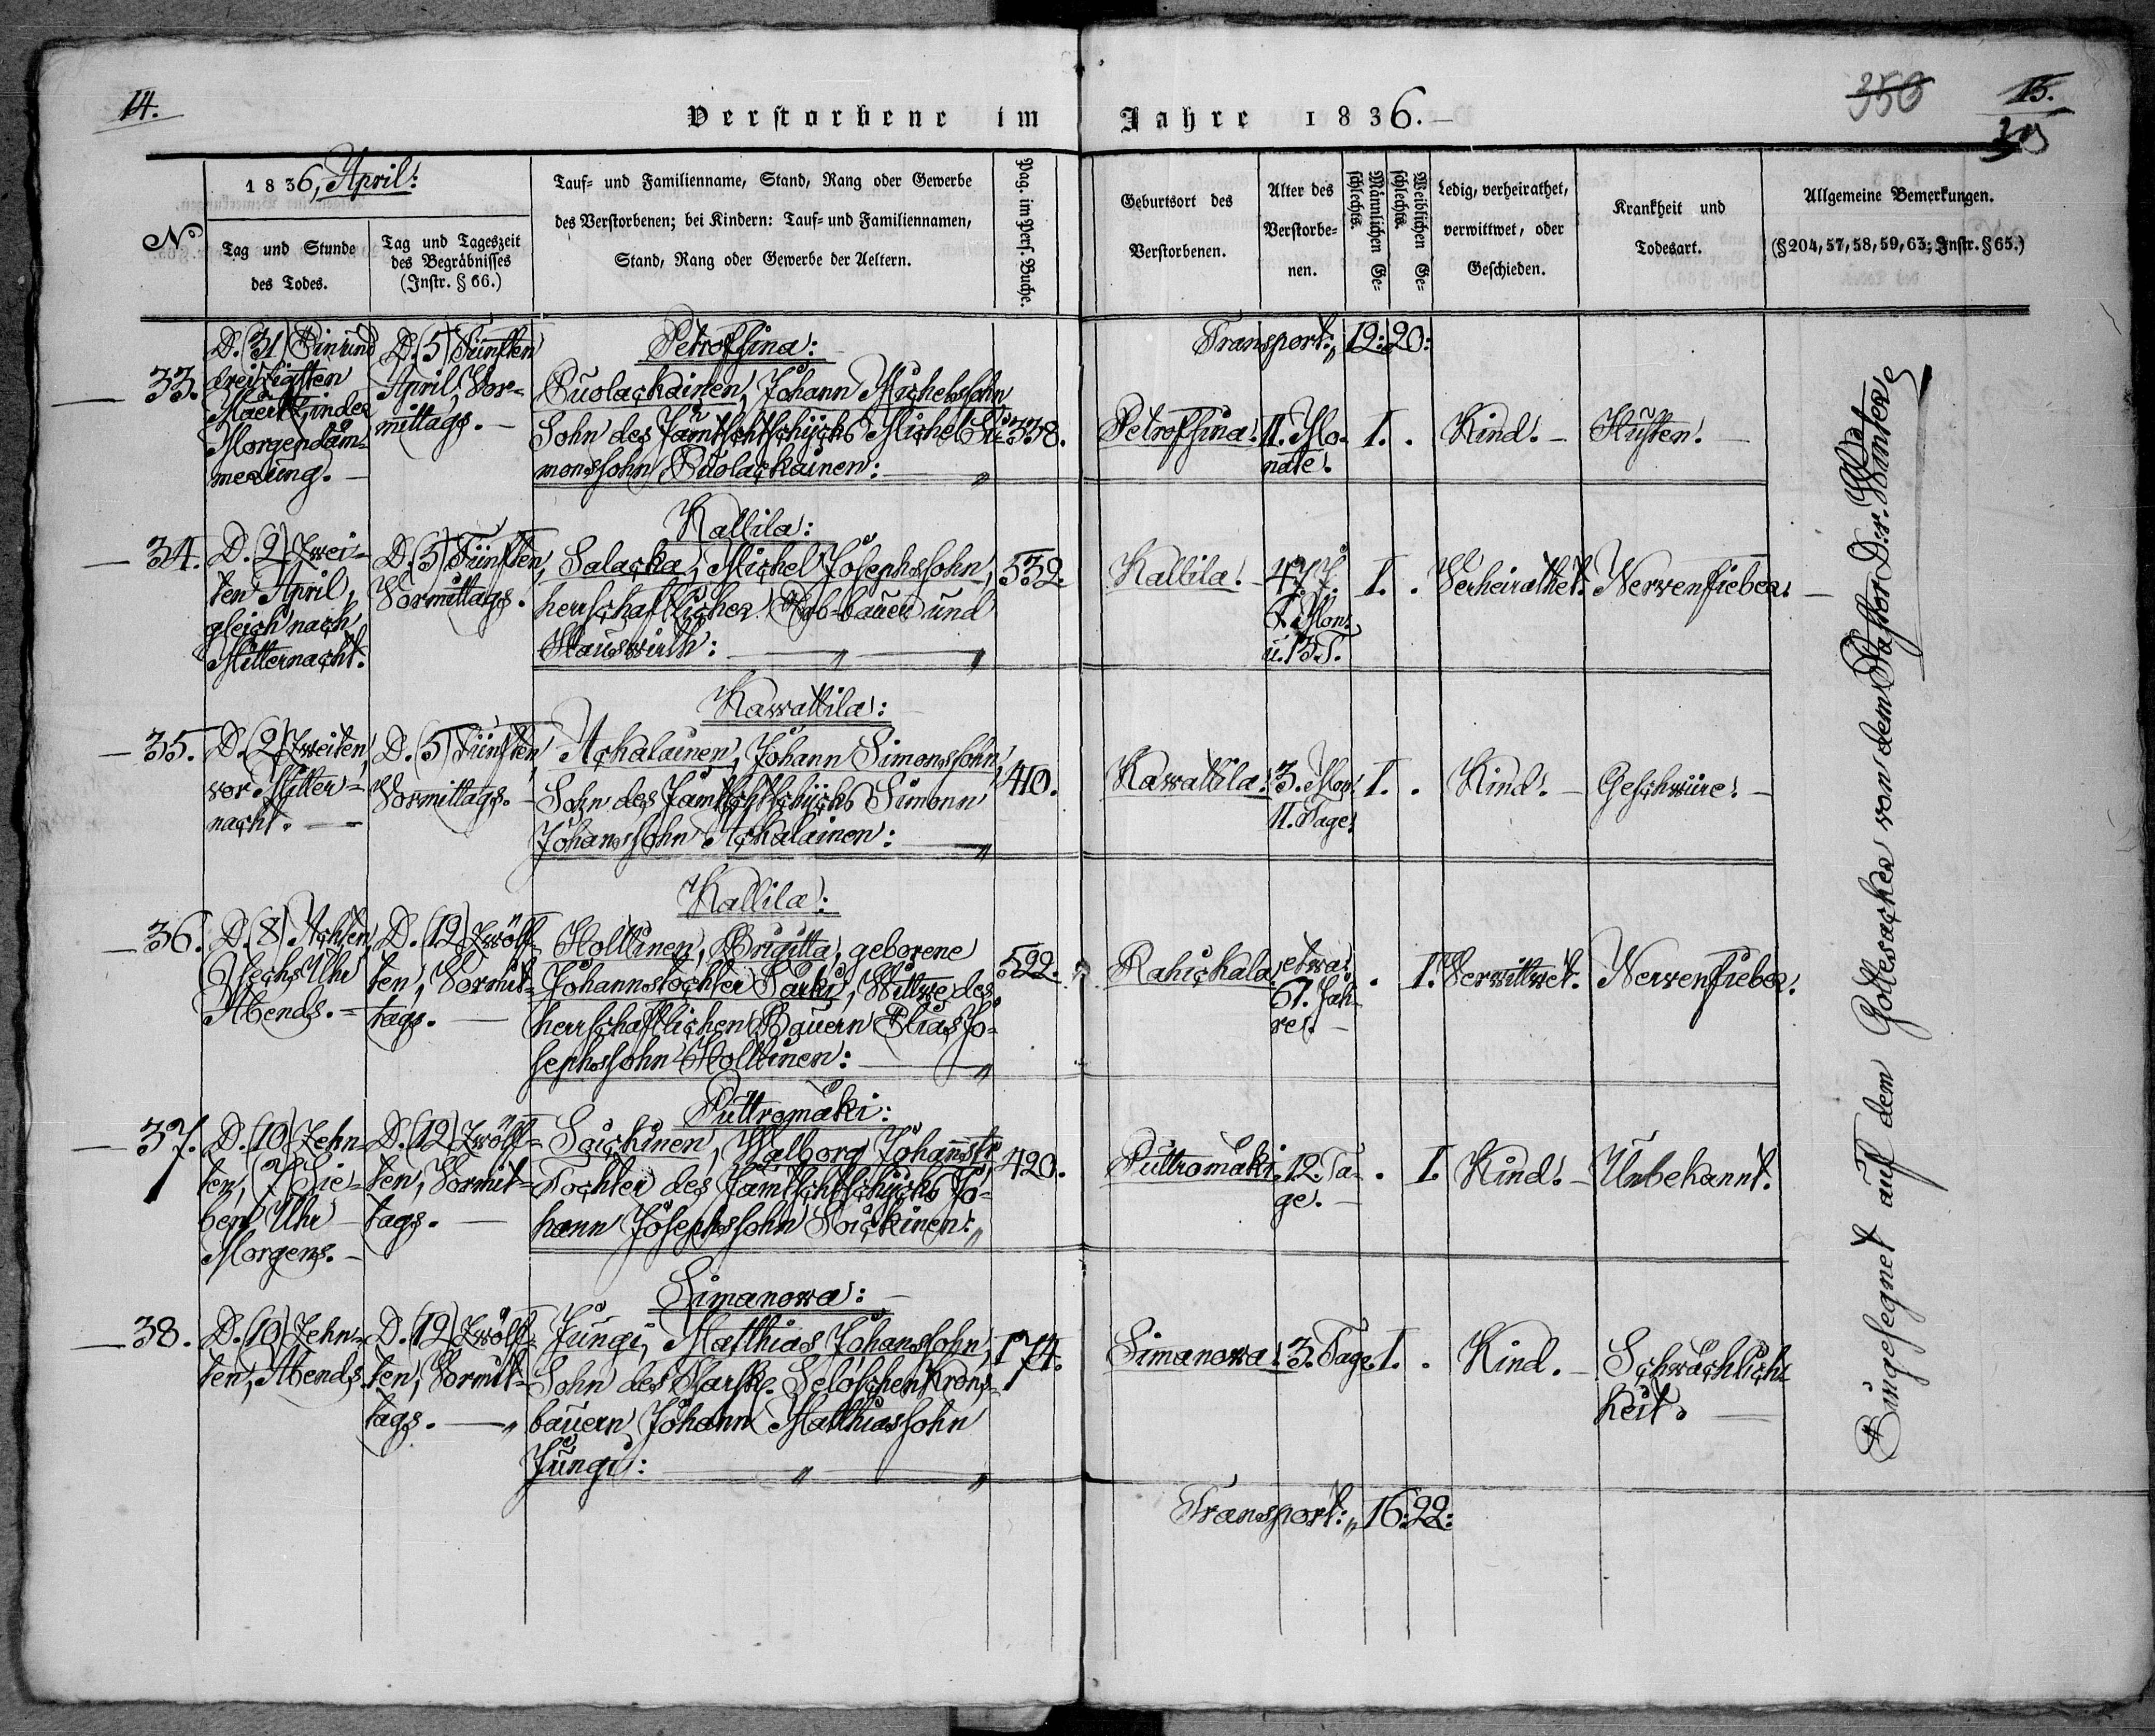 14.
Verstorbene im Jahre 1836.
350
15.
1836, April:
No
Tag und Stunde
des Todes.
Tag und Tageszeit
des Begräbnisses
(Instr. § 66.)
Tauf= und Familienname, Stand, Rang oder Gewerbe
des Verstorbenen; bei Kindern: Tauf= und Familiennamen,
Stand, Rang oder Gewerbe der Aeltern.
Pag. im Pers. Buche.
Geburtsort des
Verstorbenen.
Alter des
Verstorbe=
nen.
Männlichen Ge=
schlechts.
Weiblichen Ge=
schlechts.
Ledig, verheirathet,
verwittwet, oder
Geschieden.
Krankheit und
Todesart.
Allgemeine Bemerkungen.
(§ 204, 57, 58, 59, 63; Instr. § 65.)
Transport: 12: 20:
33.
D. (31) Einund
dreizigsten
Maertz in der
Morgendäm=
merung.
D. (5) Fünften
April, Vor=
mittags.
Petrofsina:
Puolackainen, Johann Michelssohn
Sohn des Jamtschtschicks Michel Si=
monssohn Puolackainen:
338.
Petrofsina!
11. Mo=
nate.
1. .
Kind.
Husten.
34.
D. (2) Zwei=
ten April,
gleich nach
Mitternacht.
D. (5) Fünften,
Vormittags.
Kallila:
Salacka, Michel Josephssohn,
herrschaftlicher Erb-bauer und
Hauswirth:
532.
Kallila!
47 J.
7. Mon.
u. 13 T.
1. .
Verheirathet.
Nervenfieber.
35.
D. (2) Zweiten,
vor Mitter=
nacht.
D. (5) Fünften,
Vormittags.
Kawallila:
Ackalainen, Johann Simonssohn,
Sohn des Jamtschtschicks Simonn
Johanssohn Ackalainen:
410.
Kawallila!
3. Mon.
11. Tage.
1. .
Kind.
Geschwüre.
36.
D. (8) Achten,
(6) sechs Uhr
Abends.
D. (12) Zwölf=
ten, Vormit=
tags.
Kallila:
Holttinen, Brigitta, geborene
Johannstochter Parki, Wittwe des
herrschaftlichen Bauern Elias Jo=
sephssohn Holttinen:
522.
Rahickala,
etwa
61. Jah=
re.
. 1.
Verwittwet.
Nervenfieber.
37.
D. (10) Zehn=
ten, (7) Sie=
ben Uhr
Morgens.
D. (12) Zwölf=
ten, Vormit=
tags.
Puttromäki:
Soickinen, Walborg Johannstr
Tochter des Jamtschtschicks Jo=
hann Josephssohn Soickinen:
420.
Puttromäki.
12. Ta=
ge.
. 1.
Kind.
Unbekannt.
38.
D. (10) Zehn=
ten, Abends.
D. (12) Zwölf=
ten, Vormit=
tags.
Simanowa:
Jungi, Matthias Johanssohn,
Sohn des Sarsk. Seloschen Krons=
bauern Johann Matthiassohn
Jungi:
174.
Simanowa!
3. Tage.
1. .
Kind.
Schwächlich=
keit.
Transport: 16: 22:
Eingesegnet auf dem Gottesacker von dem Pastor